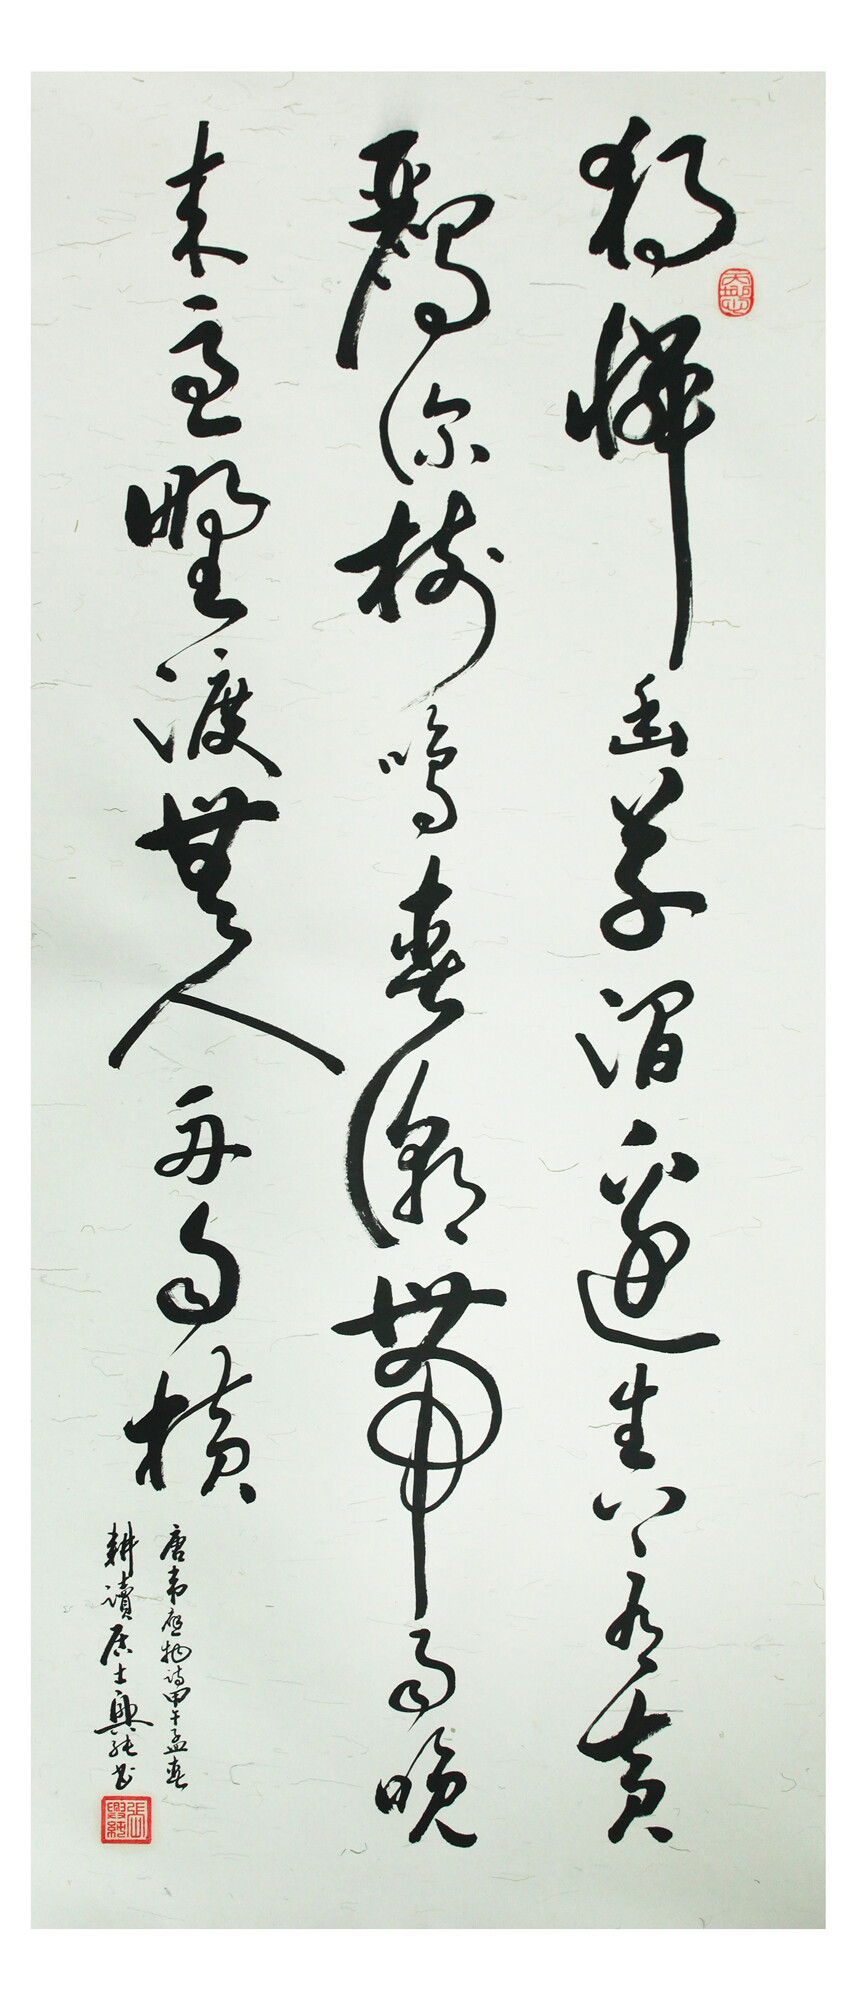 獨憐幽草澗邊生上有黃
鸝深樹鳴春潮帶雨晚
來急野渡無人舟自橫
唐韋應物詩甲午孟春
耕讀居士興純書
張興純